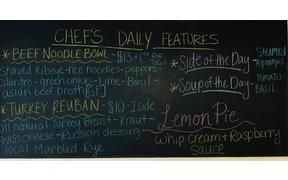 CHEF'S DAILY FEATURES
*BEEF NOODLE BOWL - $13 +1
Shaved Ribeye - rice noodles - peppers -
cilantro - green onion - lime - Basil -
asian beef broth [GF]
*TURKEY REUBAN - $10 - 1 side
all natural Turkey breast - Kraut -
swiss cheese - Russian dressing -
local Marbled Rye
*Side of the Day -
STEAMED
Asparagus
*Soup of the Day -
TOMATO
BASIL
Lemon Pie
whip cream + Raspberry
sauce